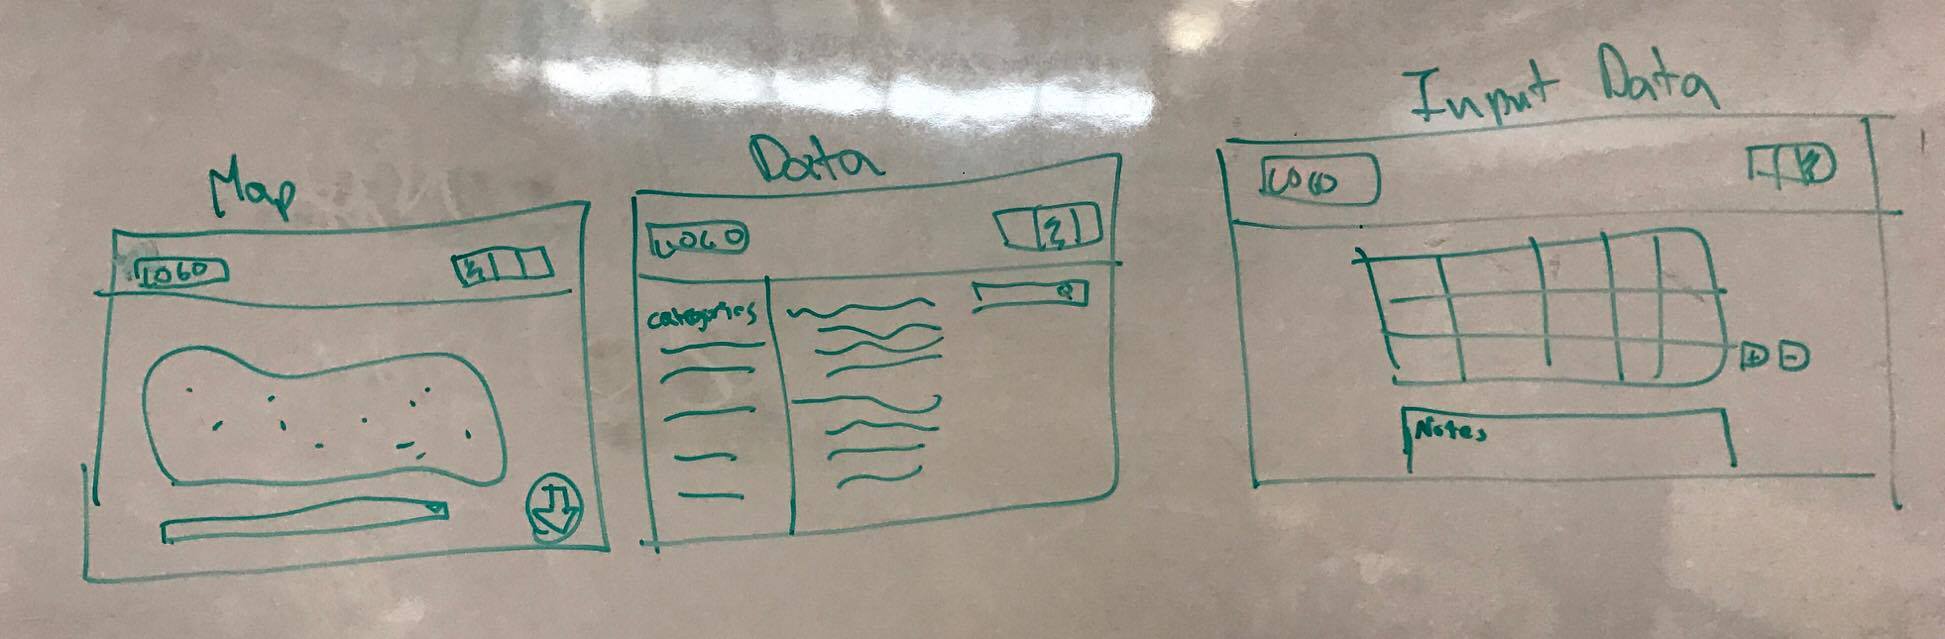 Map
LOGO
Data
LOGO
categories
Input Data
LOGO
+ -
Notes